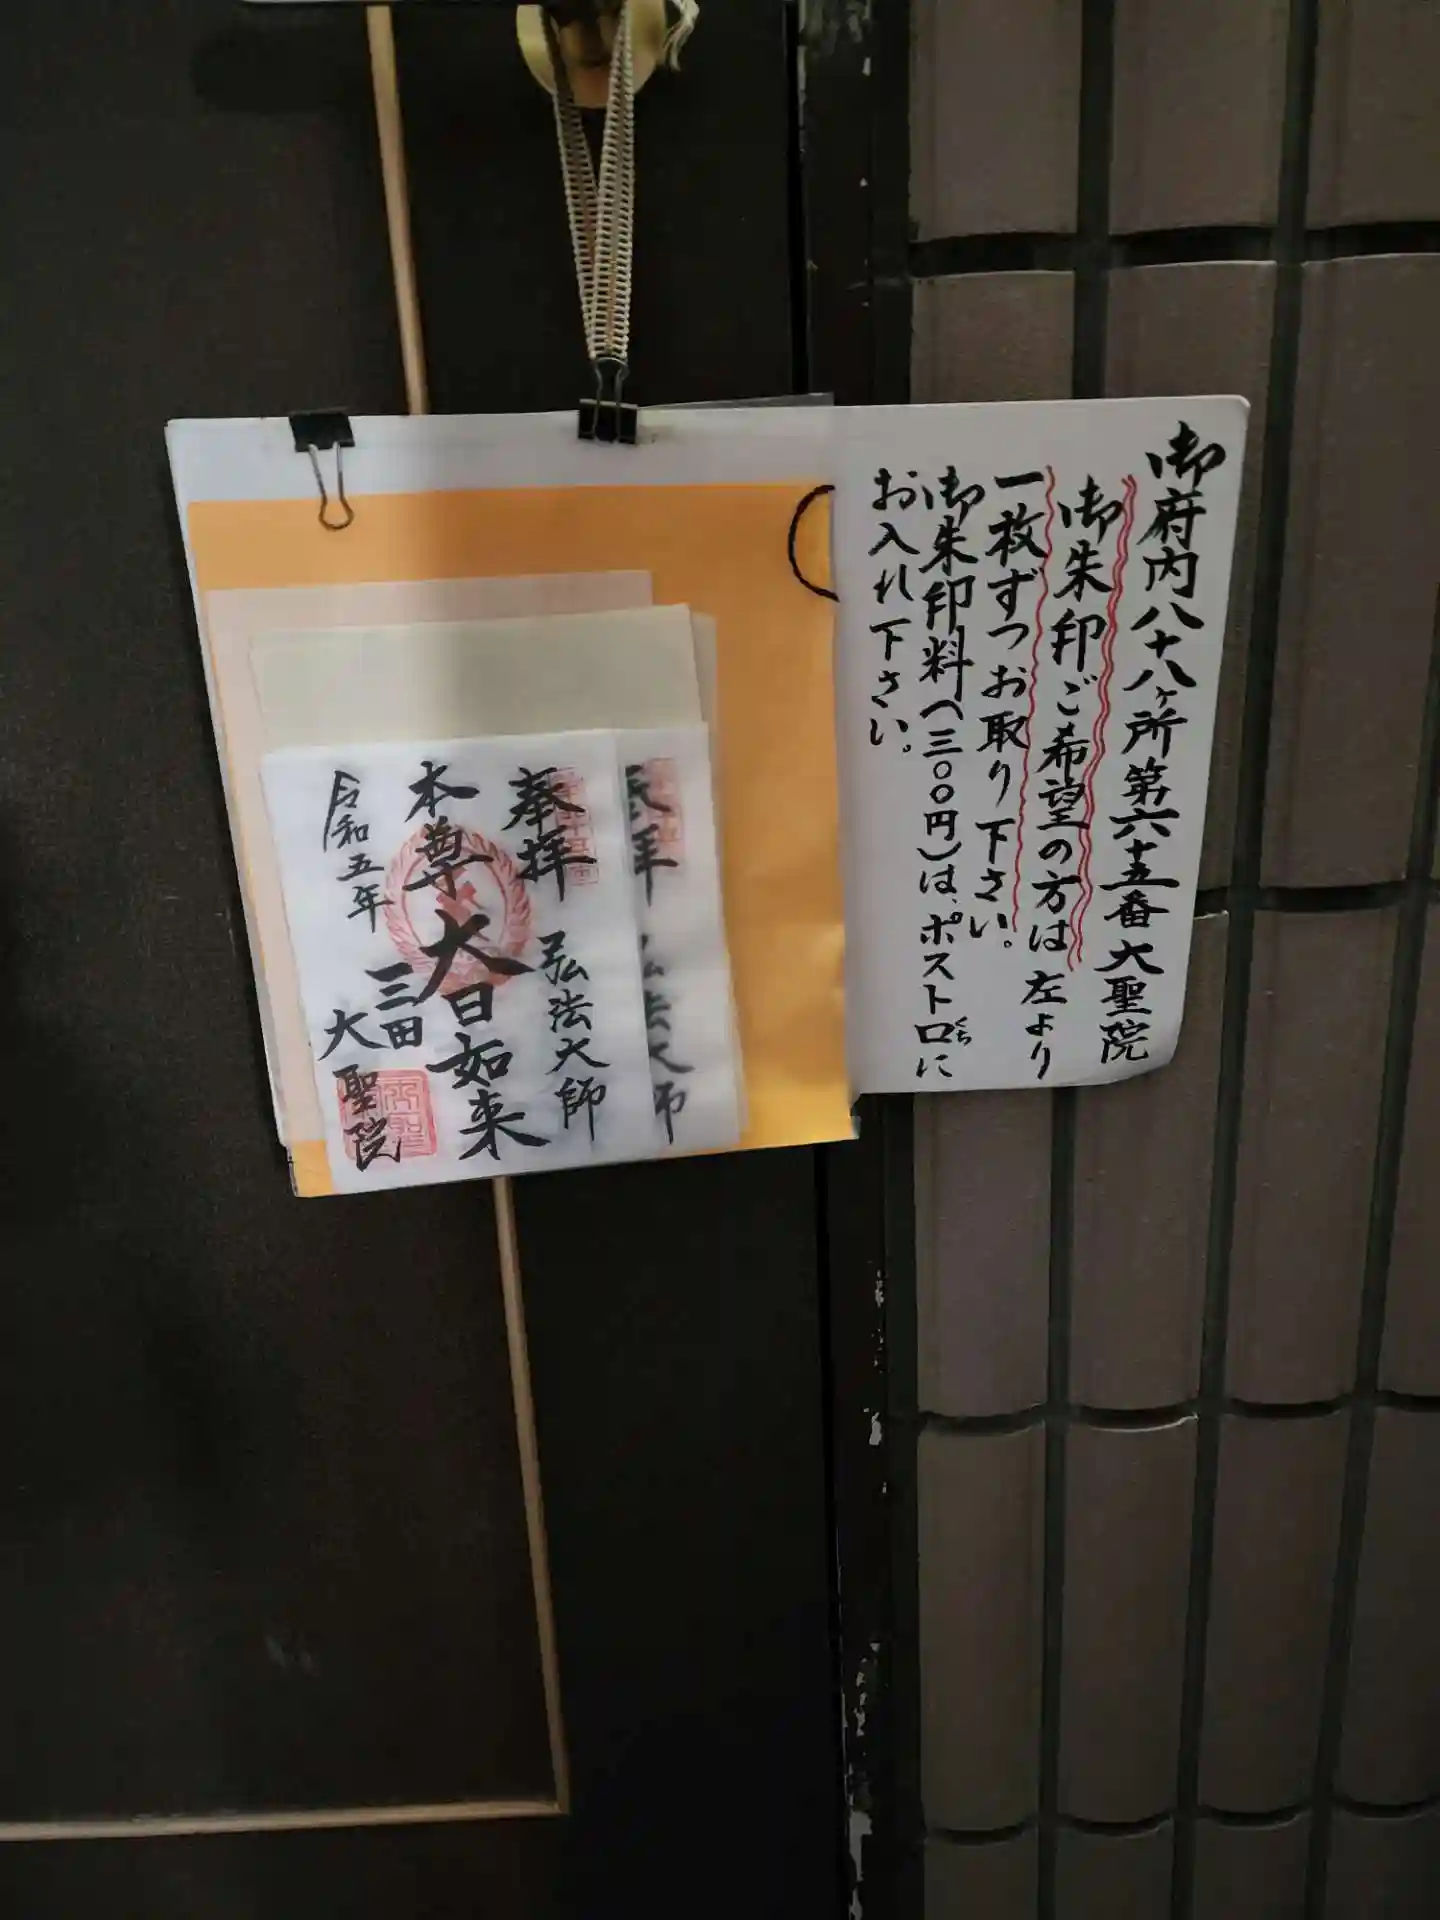 御府内八十八ヶ所第六十五番大聖院
御朱印ご希望の方は左より
一枚ずつお取り下さい。
御朱印料(三〇〇円)は、ポストロに
くち
お入れ下さい。
奉拝 弘法大師
奉拝 弘法大師
本尊大日如来
令和五年
三田
大聖院